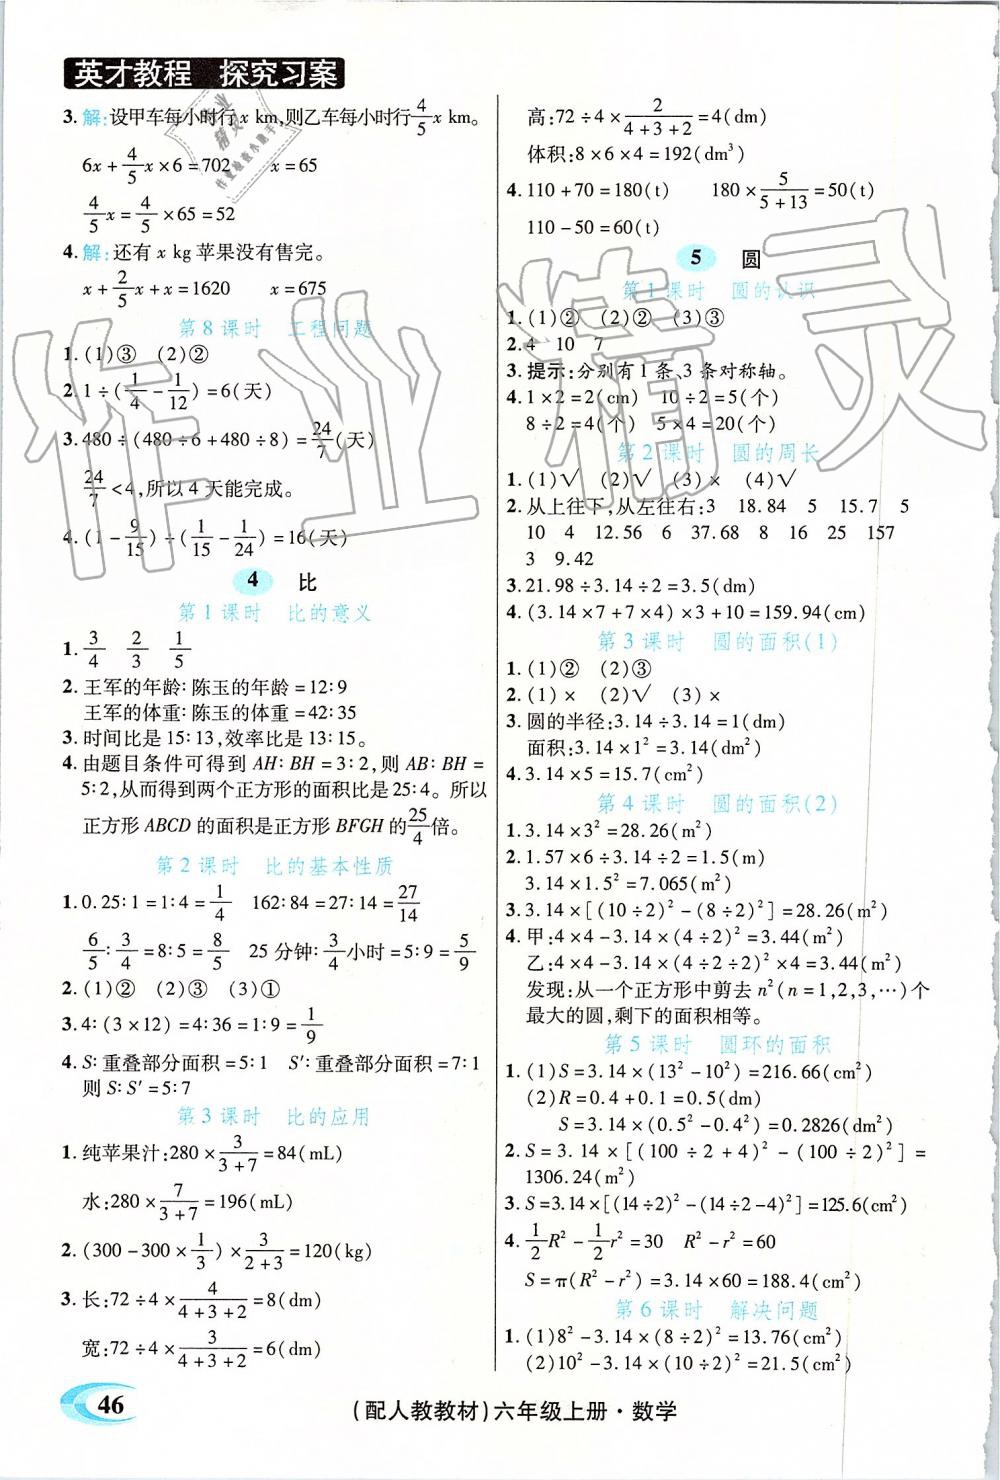 英才教程 探究习案
3. 解:设甲车每小时行 x km,则乙车每小时行4/5 x km。
6x+4/5 x×6=702 x=65
4/5 x=4/5×65=52
4. 解:还有 x kg 苹果没有售完。
x+2/5 x+x=1620 x=675
第 8 课时 工程问题
1. (1)③ (2)②
2. 1÷(1/4-1/12)=6(天)
3. 480÷(480÷6+480÷8)=24/7(天)
24/7<4,所以 4 天能完成。
4. (1-9/15)÷(1/15-1/24)=16(天)
4 比
第 1 课时 比的意义
1. 3/4 2/3 1/5
2. 王军的年龄∶陈玉的年龄=12∶9
王军的体重∶陈玉的体重=42∶35
3. 时间比是 15∶13,效率比是 13∶15。
4. 由题目条件可得到 AH∶BH=3∶2,则 AB∶BH=
5∶2,从而得到两个正方形的面积比是 25∶4。所以
正方形 ABCD 的面积是正方形 BFGH 的25/4倍。
第 2 课时 比的基本性质
1. 0.25∶1=1∶4=1/4 162∶84=27∶14=27/14
6/5∶3/4=8∶5=8/5 25 分钟∶3/4小时=5∶9=5/9
2. (1)② (2)③ (3)①
3. 4∶(3×12)=4∶36=1∶9=1/9
4. S∶重叠部分面积=5∶1 S′∶重叠部分面积=7∶1
则 S∶S′=5∶7
第 3 课时 比的应用
1. 纯苹果汁:280×3/(3+7)=84(mL)
水:280×7/(3+7)=196(mL)
2. (300-300×1/3)×3/(2+3)=120(kg)
3. 长:72÷4×4/(4+3+2)=8(dm)
宽:72÷4×3/(4+3+2)=6(dm)
高:72÷4×2/(4+3+2)=4(dm)
体积:8×6×4=192(dm³)
4. 110+70=180(t) 180×5/(5+13)=50(t)
110-50=60(t)
5 圆
第 1 课时 圆的认识
1. (1)② (2)② (3)③
2. 4 10 7
3. 提示:分别有 1 条、3 条对称轴。
4. 1×2=2(cm) 10÷2=5(个)
8÷2=4(个) 5×4=20(个)
第 2 课时 圆的周长
1. (1)√ (2)√ (3)× (4)√
2. 从上往下,从左往右:3 18.84 5 15.7 5
10 4 12.56 6 37.68 8 16 25 157
3 9.42
3. 21.98÷3.14÷2=3.5(dm)
4. (3.14×7+7×4)×3+10=159.94(cm)
第 3 课时 圆的面积(1)
1. (1)② (2)③
2. (1)× (2)√ (3)×
3. 圆的半径:3.14÷3.14=1(dm)
面积:3.14×1²=3.14(dm²)
4. 3.14×5=15.7(cm²)
第 4 课时 圆的面积(2)
1. 3.14×3²=28.26(m²)
2. 1.57×6÷3.14÷2=1.5(m)
3.14×1.5²=7.065(m²)
3. 3.14×[(10÷2)²-(8÷2)²]=28.26(m²)
4. 甲:4×4-3.14×(4÷2)²=3.44(m²)
乙:4×4-3.14×(4÷2÷2)²×4=3.44(m²)
发现:从一个正方形中剪去 n²(n=1,2,3,…)个
最大的圆,剩下的面积相等。
第 5 课时 圆环的面积
1. (1)S=3.14×(13²-10²)=216.66(cm²)
(2)R=0.4+0.1=0.5(dm)
S=3.14×(0.5²-0.4²)=0.2826(dm²)
2. S=3.14×[(100÷2+4)²-(100÷2)²]=
1306.24(m²)
3. S=3.14×[(14÷2)²-(14÷2-4)²]=125.6(cm²)
4. 1/2 R²-1/2 r²=30 R²-r²=60
S=π(R²-r²)=3.14×60=188.4(cm²)
第 6 课时 解决问题
1. (1)8²-3.14×(8÷2)²=13.76(cm²)
(2)10²-3.14×(10÷2)²=21.5(cm²)
46
(配人教教材)六年级上册·数学
作业精灵